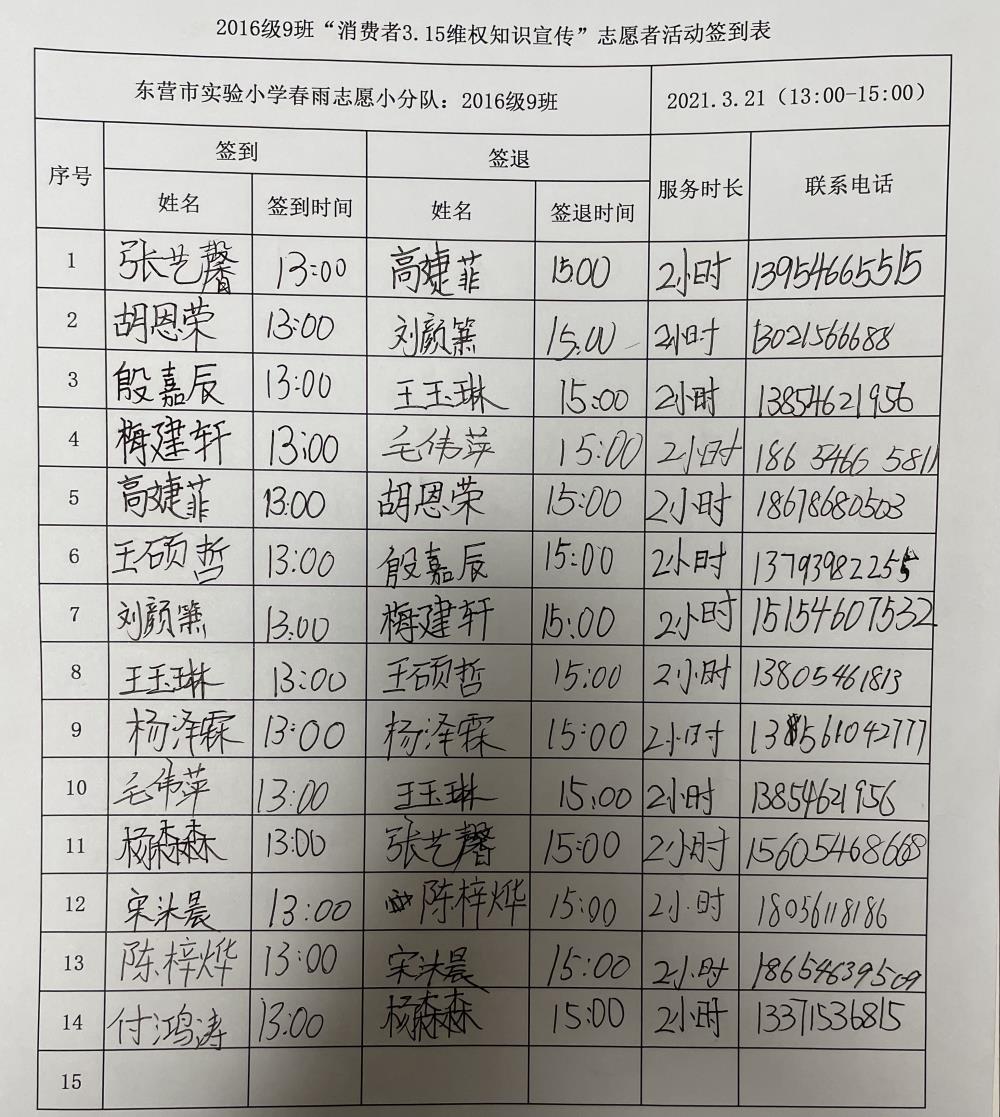 2016级9班“消费者3.15维权知识宣传”志愿者活动签到表
东营市实验小学春雨志愿小分队：2016级9班 2021.3.21（13:00-15:00）
序号 签到 签退 服务时长 联系电话
姓名 签到时间 姓名 签退时间
1 张艺馨 13:00 高婕菲 15:00 2小时 13954665515
2 胡恩荣 13:00 刘颜篱 15:00 2小时 13021566688
3 殷嘉辰 13:00 王玉琳 15:00 2小时 13854621956
4 梅建轩 13:00 毛伟萍 15:00 2小时 186 3466 5811
5 高婕菲 13:00 胡恩荣 15:00 2小时 18678680503
6 王硕哲 13:00 殷嘉辰 15:00 2小时 13793982255
7 刘颜篱 13:00 梅建轩 15:00 2小时 15154607532
8 王玉琳 13:00 王硕哲 15:00 2小时 13805461813
9 杨泽霖 13:00 杨泽霖 15:00 2小时
10 毛伟萍 13:00 王玉琳 15:00 2小时 13854621956
11 杨森森 13:00 张艺馨 15:00 2小时 15605468668
12 宋沐晨 13:00 陈梓烨 15:00 2小时 1805618186
13 陈梓烨 13:00 宋沐晨 15:00 2小时 18654639509
14 付鸿涛 13:00 杨森森 15:00 2小时 13371536815
15